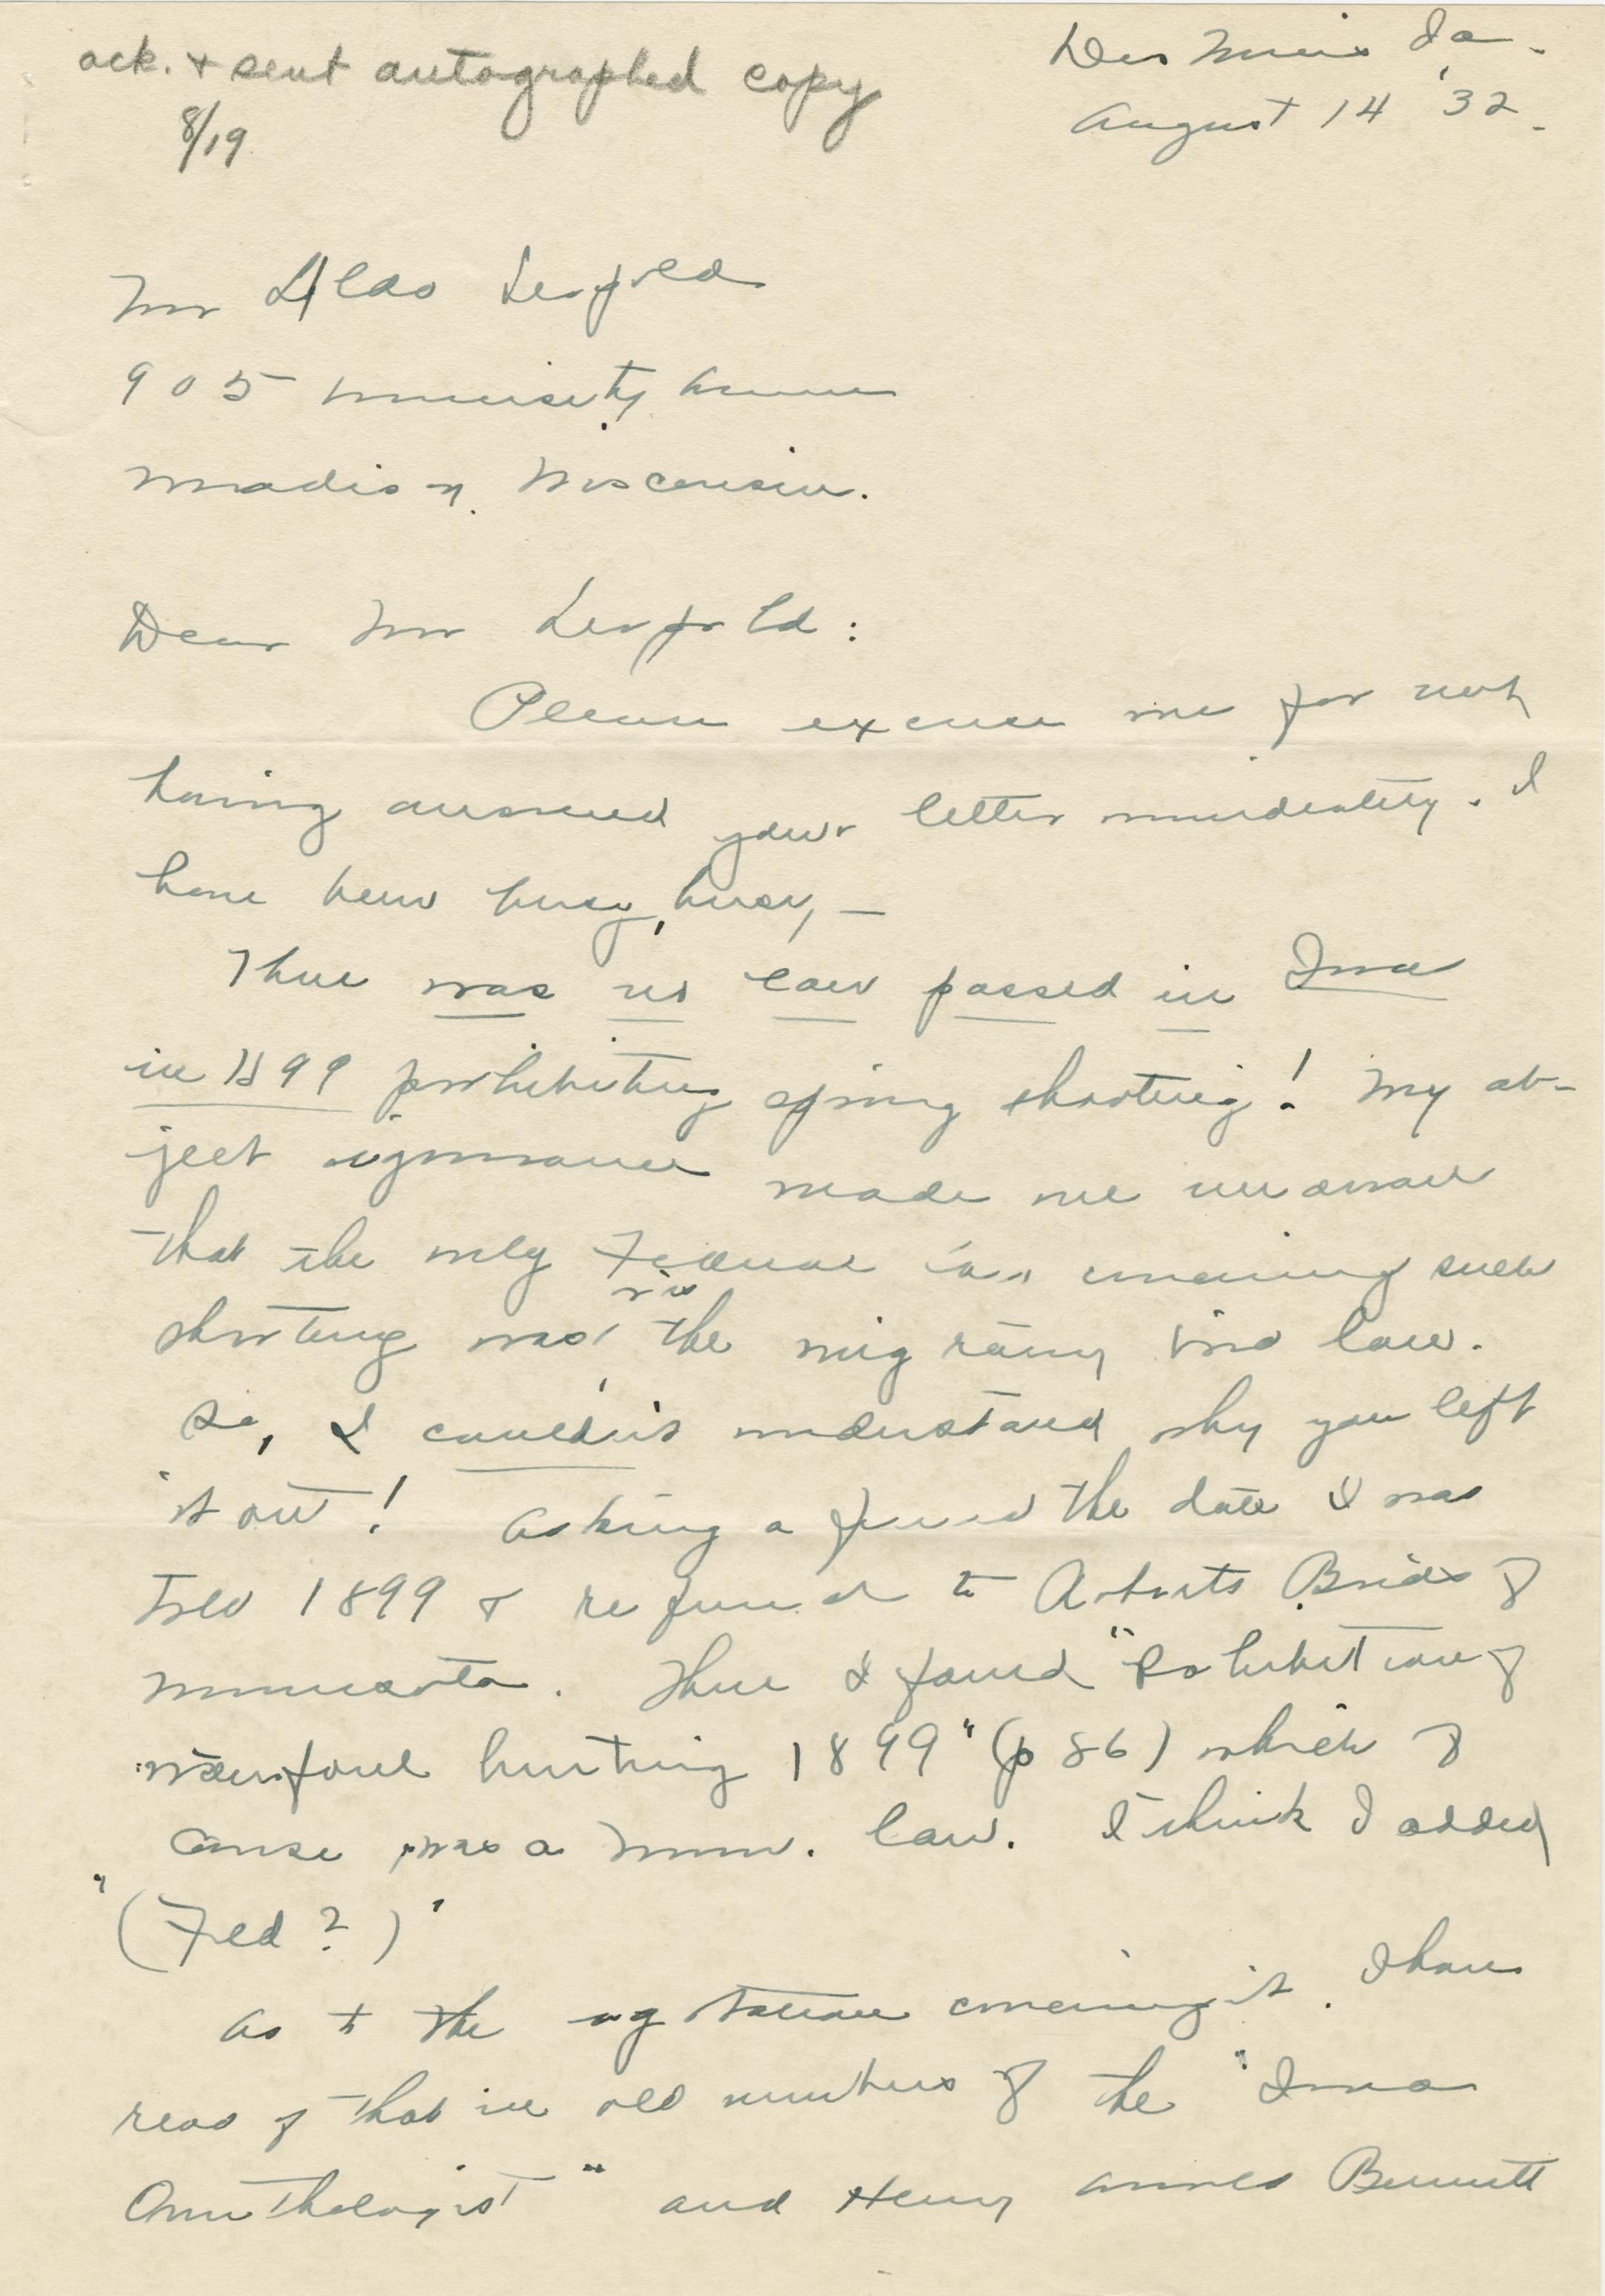 ack. + sent autographed copy
8/19
Des Moines Ia.
August 14, '32.
Mr Aldo Leopold
905 University Avenue
Madison, Wisconsin.
Dear Mr Leopold:
Please excuse me for not
having answered your letter immediately. I
have been busy, busy, —
There was no law passed in Iowa
in 1899 prohibiting spring shooting! My ab-
ject ignorance made me unaware
that the only Federal law concerning such
shooting was the migratory bird law.
So, I couldn't understand why you left
it out! Asking a friend the date I was
told 1899 & referred to Roberts Birds of
Minnesota. There I found "Prohibition of
waterfowl hunting 1899" (p 86) which of
course was a Minn. law. I think I added
"(Fed?)"
As to the agitation concerning it, I have
read of that in old numbers of the "Iowa
Ornithologist" and Henry Arnold Bennett